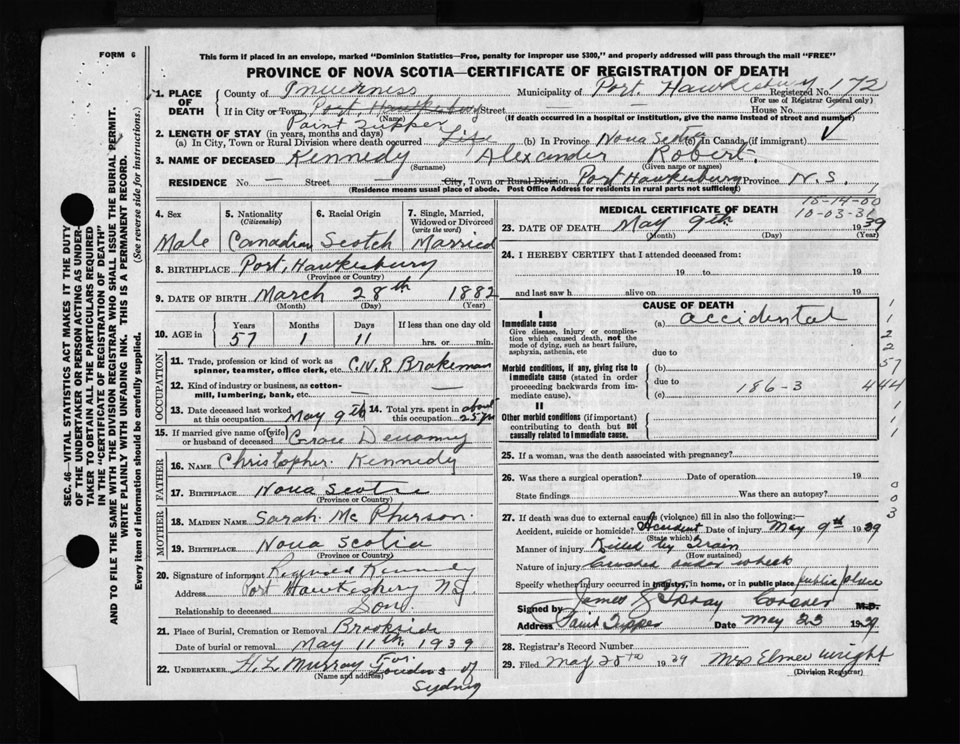 FORM 6
This form if placed in an envelope, marked "Dominion Statistics—Free, penalty for improper use $300," and properly addressed will pass through the mail "FREE"
PROVINCE OF NOVA SCOTIA—CERTIFICATE OF REGISTRATION OF DEATH
1. PLACE OF DEATH County of Inverness Municipality of Port Hawkesbury Registered No. 172
(For use of Registrar General only)
If in City or Town, Port Hawkesbury Street — — House No.
(Name) (If death occurred in a hospital or institution, give the name instead of street and number)
Point Tupper
2. LENGTH OF STAY (in years, months and days)
(a) In City, Town or Rural Division where death occurred Life (b) In Province Nova Scotia (c) In Canada (if immigrant)
3. NAME OF DECEASED Kennedy Alexander Robert.
(Surname) (Given name or names)
RESIDENCE No. — Street City, Town or Rural Division Port Hawkesbury Province N.S.
(Residence means usual place of abode. Post Office Address for residents in rural parts not sufficient)
4. Sex Male
5. Nationality (Citizenship) Canadian
6. Racial Origin Scotch
7. Single, Married, Widowed or Divorced (write the word) Married
8. BIRTHPLACE Port, Hawkesbury
(Province or Country)
9. DATE OF BIRTH March 28th 1882
(Month) (Day) (Year)
10. AGE in Years 57 Months 1 Days 11 If less than one day old hrs. or min.
OCCUPATION
11. Trade, profession or kind of work as spinner, teamster, office clerk, etc. C.N.R. Brakeman
12. Kind of industry or business, as cotton-mill, lumbering, bank, etc. — —
13. Date deceased last worked at this occupation May 9th 14. Total yrs. spent in this occupation about 25 yr
15. If married give name of wife or husband of deceased Grace
FATHER
16. NAME Christopher Kennedy
17. BIRTHPLACE Nova Scotia
(Province or Country)
MOTHER
18. MAIDEN NAME Sarah McPherson
19. BIRTHPLACE Nova Scotia
(Province or Country)
20. Signature of informant Kennedy
Address Port Hawkesbury N.S.
Relationship to deceased Son
21. Place of Burial, Cremation or Removal Brookside
Date of burial or removal May 11th, 1939
22. UNDERTAKER H.L. Murray For of Sydney
(Name and address)
MEDICAL CERTIFICATE OF DEATH
10-14-00
10-03-31
23. DATE OF DEATH May 9th 1939
(Month) (Day) (Year)
24. I HEREBY CERTIFY that I attended deceased from:
19 to 19
and last saw h alive on 19
CAUSE OF DEATH
I
Immediate cause (a) accidental
Give disease, injury or complication which caused death, not the mode of dying, such as heart failure, asphyxia, asthenia, etc
due to
Morbid conditions, if any, giving rise to immediate cause (stated in order proceeding backwards from immediate cause). (b)
due to 186-3
(c)
II
Other morbid conditions (if important) contributing to death but not causally related to immediate cause.
1
1
2
2
57
444
1
1
1
25. If a woman, was the death associated with pregnancy?
26. Was there a surgical operation? Date of operation 19
State findings Was there an autopsy?
0
0
3
27. If death was due to external causes (violence) fill in also the following:—
Accident, suicide or homicide? Accident Date of injury May 9th 1939
(State which)
Manner of injury Killed by Train
(How sustained)
Nature of injury Crushed under wheels
Specify whether injury occurred in industry, in home, or in public place public place
Signed by James Spray Coroner M.D.
Address Point Tupper Date May 23 1939
28. Registrar's Record Number
29. Filed May 25th 1939 Mrs Elmer Wright
(Division Registrar)
SEC. 46—VITAL STATISTICS ACT MAKES IT THE DUTY OF THE UNDERTAKER OR PERSON ACTING AS UNDERTAKER TO OBTAIN ALL THE PARTICULARS REQUIRED IN THE "CERTIFICATE OF REGISTRATION OF DEATH" AND TO FILE THE SAME WITH THE DIVISION REGISTRAR WHO SHALL ISSUE THE BURIAL PERMIT.
WRITE PLAINLY WITH UNFADING INK. THIS IS A PERMANENT RECORD.
Every item of information should be carefully supplied. (See reverse side for instructions.)